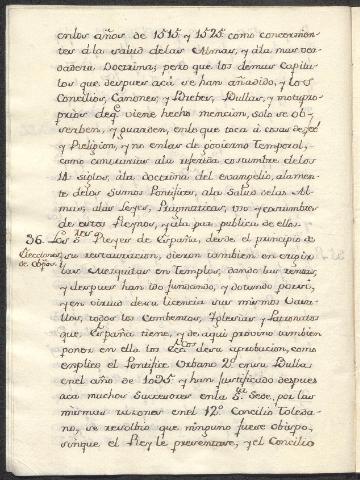 en los años de 1515, y 1525 como concernien-
tes á la salud de las Almas, y á la mas ver-
dadera Doctrina; pero que los demas Capitu-
los que despues acá se han añadido, y los
Concilios, Canones, y Brebes, Bullas, y motupro-
prios de q.e viene hecho mencion, solo se ob-
serben, y guarden, en lo que toca á cosas de feé
y Religion, y no en las de govierno Temporal,
como contrarias ála referida costumbre de los
14 siglos, ála doctrina del evangelio, ála men-
te delos Sumos Pontifices, ála Salud de las Al-
mas, álas Leyes, Pragmaticas, uso y costumbres
de estos Reynos, y ála paz publica de ellos.
36. Los S.res Reyes de España, desde el principio de
Elecciones
de Obpos.
su restauracion, dieron tambien en erigir
las Mezquitas en Templos, dando las rentas,
y despues han ido fundando, y dotando por si,
y en virtud de su licencia sus mismos Vasa-
llos, todos los Combentos, Yglesias y Patronatos
que España tiene, y de aqui provino tambien
poner en ella los de su aprobacion, como
explicó el Pontifice Urbano 2.o en su Bulla
en el año de 1095 y han justificado despues
acá muchos Succesores en la S.ta Sede, por las
mismas razones en el 12.o Concilio Toleda-
no, se resolbió que ninguno fuese obispo,
sin que el Rey le presentase, y el Concilio